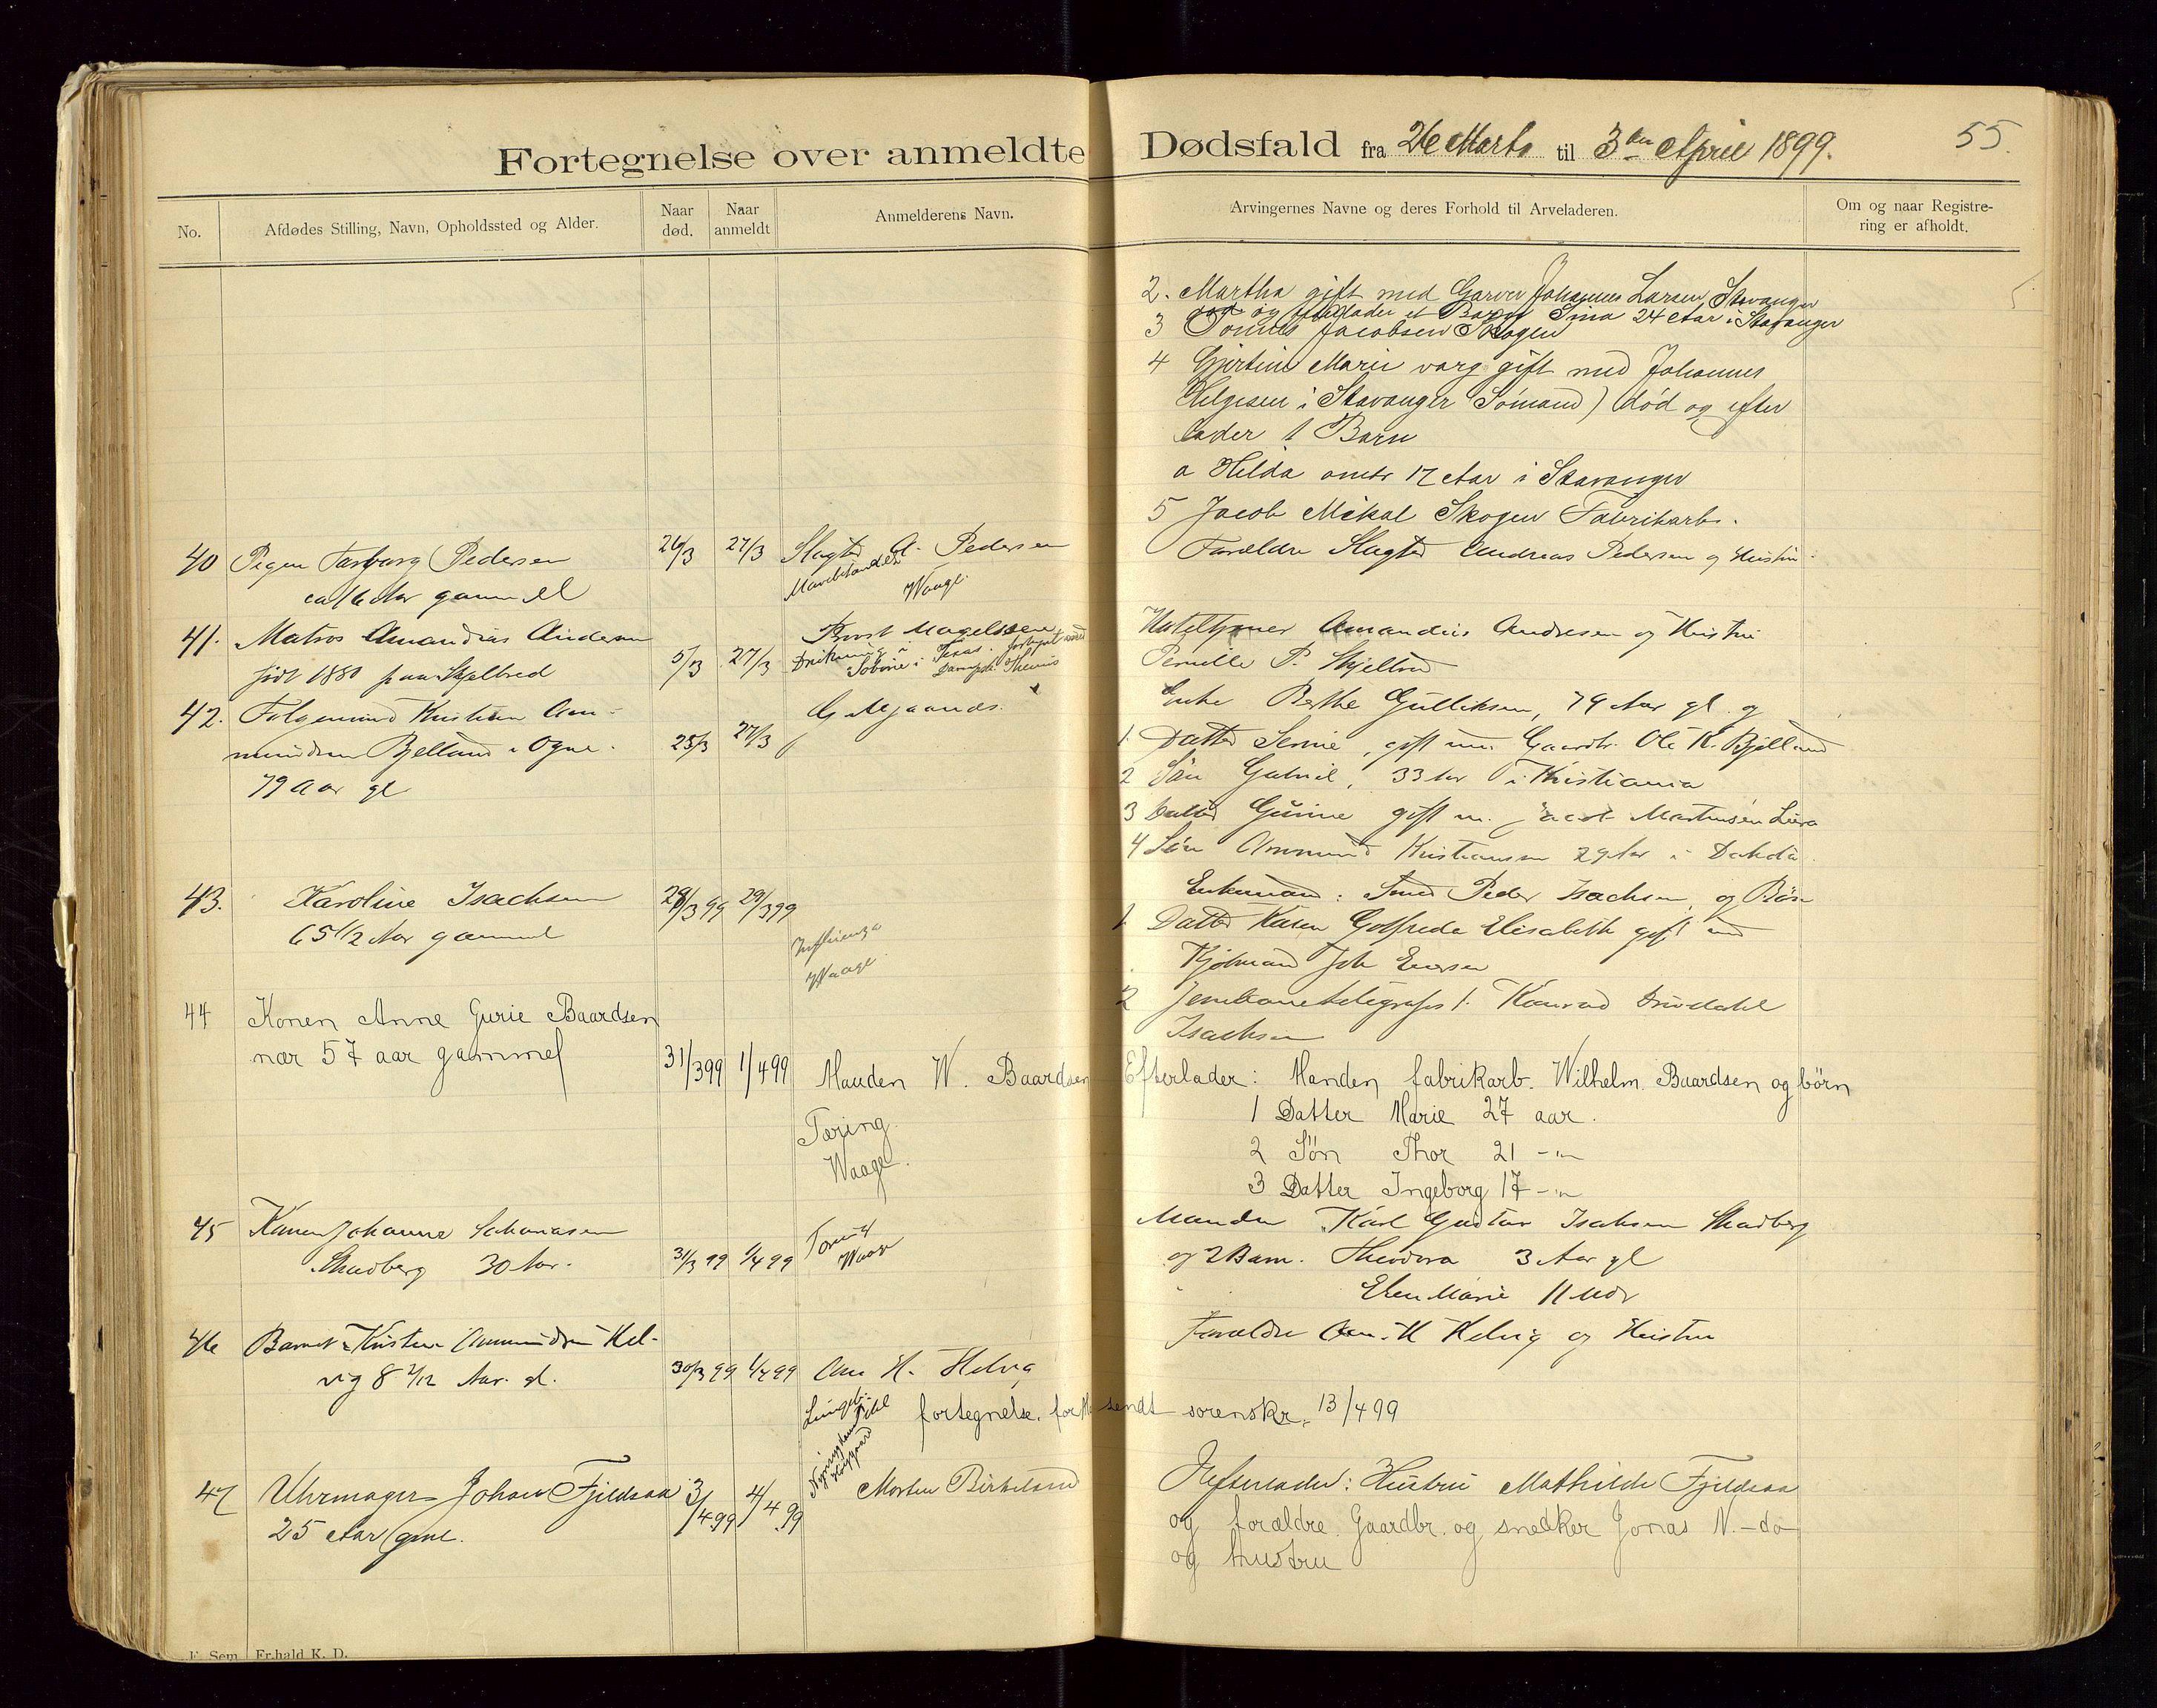 Fortegnelse over anmeldte Dødsfald fra 26 Marts til 3die April 1899.
55.
No.
Afdødes Stilling, Navn, Opholdssted og Alder.
Naar død.
Naar anmeldt
Anmelderens Navn.
Arvingernes Navne og deres Forhold til Arveladeren.
Om og naar Registre-
ring er afholdt.
2. Martha gift med Garver Johannes Larsen Stavanger
og efterlader et Barn Sina 24 Aar i Stavanger
3 Tønnes Jacobsen Skogen
4 Gjertine Marie varg gift med Johannes
Helgesen i Stavanger Sømand) død og efter
lader 1 Barn
a Hilda omtr 17 Aar i Stavanger
5 Jacob Mikal Skogen Fabrikarb.
40 Pigen Pedersen
ca 16 Aar gammel
26/3 27/3 Slagter A. Pedersen
Waage.
Forældre Slagter Andreas Pedersen og Hustru.
41. Matros Amandius Andersen
født 1880 paa Skjelbred
5/3 27/3 Provst Magelssen
Drukning i Sabine i Texas. forlyst med Dampsk. Themis
Amandus Andresen og Hustru
Pernille P. Skjelbred
42. Følgemand Kristian Am-
mundsen Bjelland i Ogne.
79 Aar gl
25/3 27/3 G. Mjaanes.
Enke Berthe Gulliksen, 79 Aar gl. og
1. Datter Serine, gift m. Gaardbr. Ole K. Bjelland
2 Søn Gabriel, 33 Aar i Kristiania
3 Datter Gurine gift m. Jacob Martinsen Lura
4 Søn Ommund Kristiansen 29 Aar i Dakota
43. Karoline Isachsen
65 1/2 Aar gammel
28/3 99 29/3 99
Influenza
Waage.
Enkemand: Smed Peder Isachsen, og Børn
1 Datter Karen Golfreda Elisabeth gift med
Kjøbmand Joh Eversen
2 Jernbanetelegrafist Konrad Drivdahl
Isachsen
44 Konen Anne Gurie Baardsen
nær 57 aar gammel
31/3 99 1/4 99 Manden W. Baardsen
Tæring.
Waage.
Efterlader: Manden fabrikarb. Wilhelm Baardsen og børn
1 Datter Marie 27 aar.
2 Søn Thor 21 -"-
3 Datter Ingeborg 17 -"-
45 Konen Johanne
Skadberg 30 Aar.
31/3 99 1/4 99
Manden Karl Gustav Isaksen Skadberg
og 2 Barn. Theodora 3 Aar gl
Ellen Marie 11 Mdr
46 Barnet Kristine Ommundsen Hel-
vig 8 2/12 Aar gl.
30/3 99 1/4 99 Om H. Helvig
Forældre Om. H Helvig og Hustru
fortegnelse forth sendt sorenskr. 13/4 99
47 Uhrmager Johan Fjeldsaa
25 Aar gml.
3/4 99 4/4 99 Morten Birkeland
Efterlader: Hustru Mathilde Fjeldsaa
og forældre Gaardbr. og snedker Jonas N. -do-
og hustru
E. Sem Fr.hald K. D.